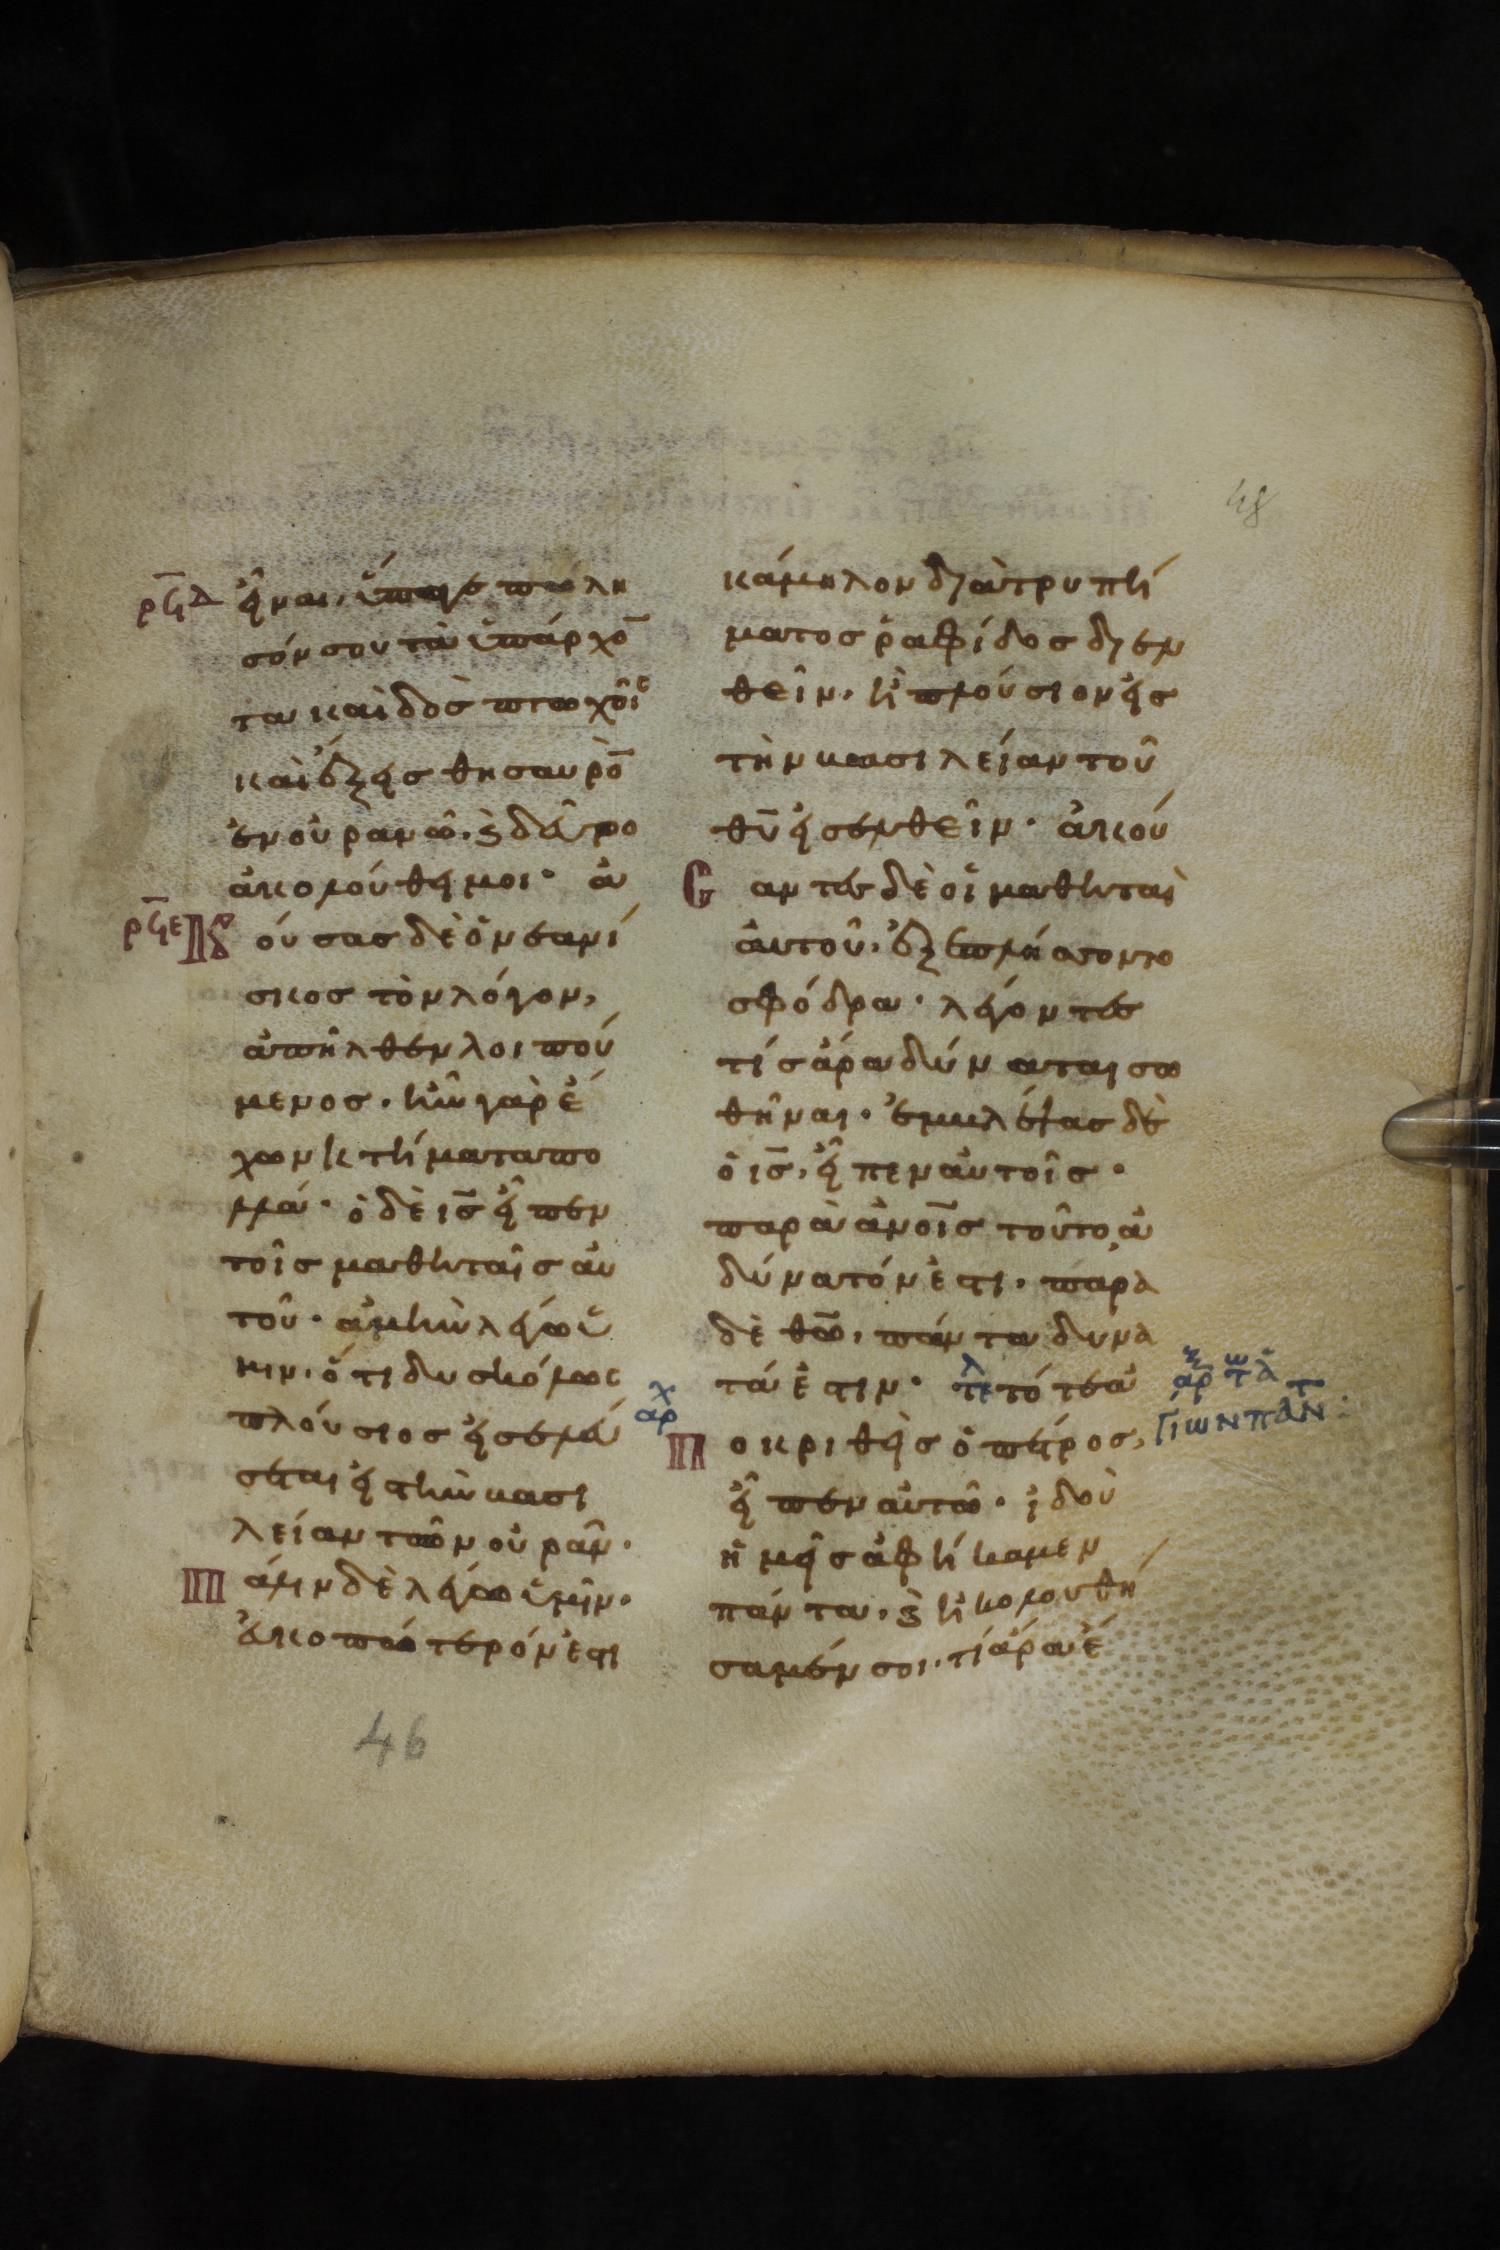 48
ρϟδ εἶναι, ὕπαγε πώλη
σόν σου τὰ ὑπάρχο̅
τα καὶ δὸσ πτωχοῖς
καὶ ἕξεισ θησαυρὸ̅
ἐν οὐρανῶ. ϗ δεῦρο
ἀκολούθει μοι· ἀ
ρϟε Κ ούσασ δὲ ὁ νεανί
σκοσ τὸν λόγον,
ἀπῆλθεν λοιπού
μενοσ. ἦν γὰρ ἔ
χων κτήματα πο
λλά· ὁ δὲ ις̅ εἶπεν
τοῖσ μαθηταῖσ αὐ
τοῦ· ἀμὴν λέγω ὑ
μιν. ὅτι δυσκόλως
πλούσιοσ εἰσελεύ
σεται εἰς τὴν βασι
λείαν τῶν οὐραν̑·
Π άλιν δὲ λέγω ὑμῖν·
ἐυκοπώτερόν ἐστι
κάμηλον διὰ τρυπή
ματοσ ῥαφίδοσ διελ
θεῖν, ἢ πλούσιον εἰσ
τὴν βασιλείαν τοῦ
θυ̅ εἰσελθεῖν· ἀκού
C αντεσ δὲ οἱ μαθηταὶ
ἀυτοῦ, ἐξεπλήσσοντο
σφόδρα· λέγοντεσ
τίσ ἄρα δύναται σω
θῆναι· ἐμβλέψασ δὲ
ὁ ις̅, εἶπεν ἀυτοῖσ·
παρὰ ἀνοι̅σ τοῦτο ἀ
δύνατόν ἐστι. παρα
δὲ θω̅, πάντα δυνα
τά ἐστιν· τε λ τότε ἀ
αρ χ Π οκριθεὶσ ὁ πέτροσ,
εἶπεν ἀυτῶ· ἰδοὺ
ἡμεῖσ ἀφήκαμεν
πάντα, ϗ ἠκολουθή
σαμέν σοι. τί ἄρα ἔ
46